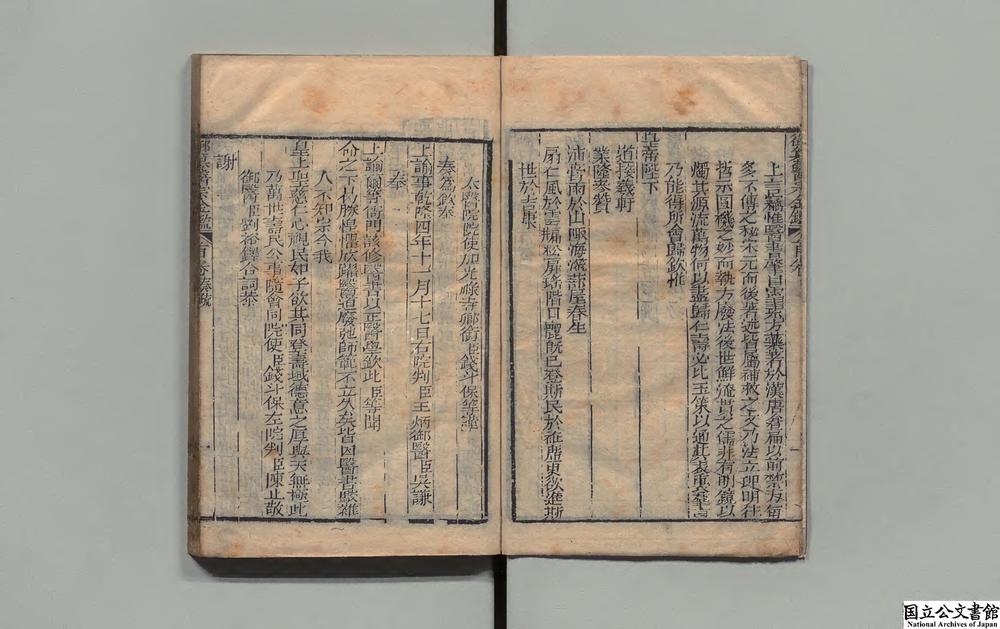 御纂醫宗金鑑 首卷
上言竊惟醫書肇自軒義方藥著於漢唐倉扁以前禁方每
多不傳之秘宋元而後著述皆屬補救之文乃法立即明往
哲示圓機之妙而執方廢法後世鮮流貫之儒非有明鏡以
燭其源流萬物何以盡歸仁壽必比玉策以通此表裏羣
乃能得所會歸欽惟
皇帝陛下
道接羲軒
業隆參贊
沛膏雨於山陬海澨蔀屋春生
扇仁風於雲牖松屏瑤階日麗既已登斯民於在宥更欲進斯
世於吉康
太醫院院使加光祿寺卿銜臣錢斗保等謹
奏為欽奉
上諭事乾隆四年十一月十七日右院判臣王炳御醫臣吳謙
奉
上諭爾等衙門該修醫書以正醫學欽此臣等聞
命之下仍朕惶懼欣躍醫道廢弛師範不立久矣皆因醫書駁雜
人不知宗今我
皇上聖慈仁心視民如子欲其同登壽域德意之厚與天無極此
乃萬世壽民公事隨會同院使臣錢斗保左院判臣陳止敬
御醫臣劉裕鐸合詞恭
謝
御纂醫宗金鑑 首卷 奏疏
国立公文書館
National Archives of Japan